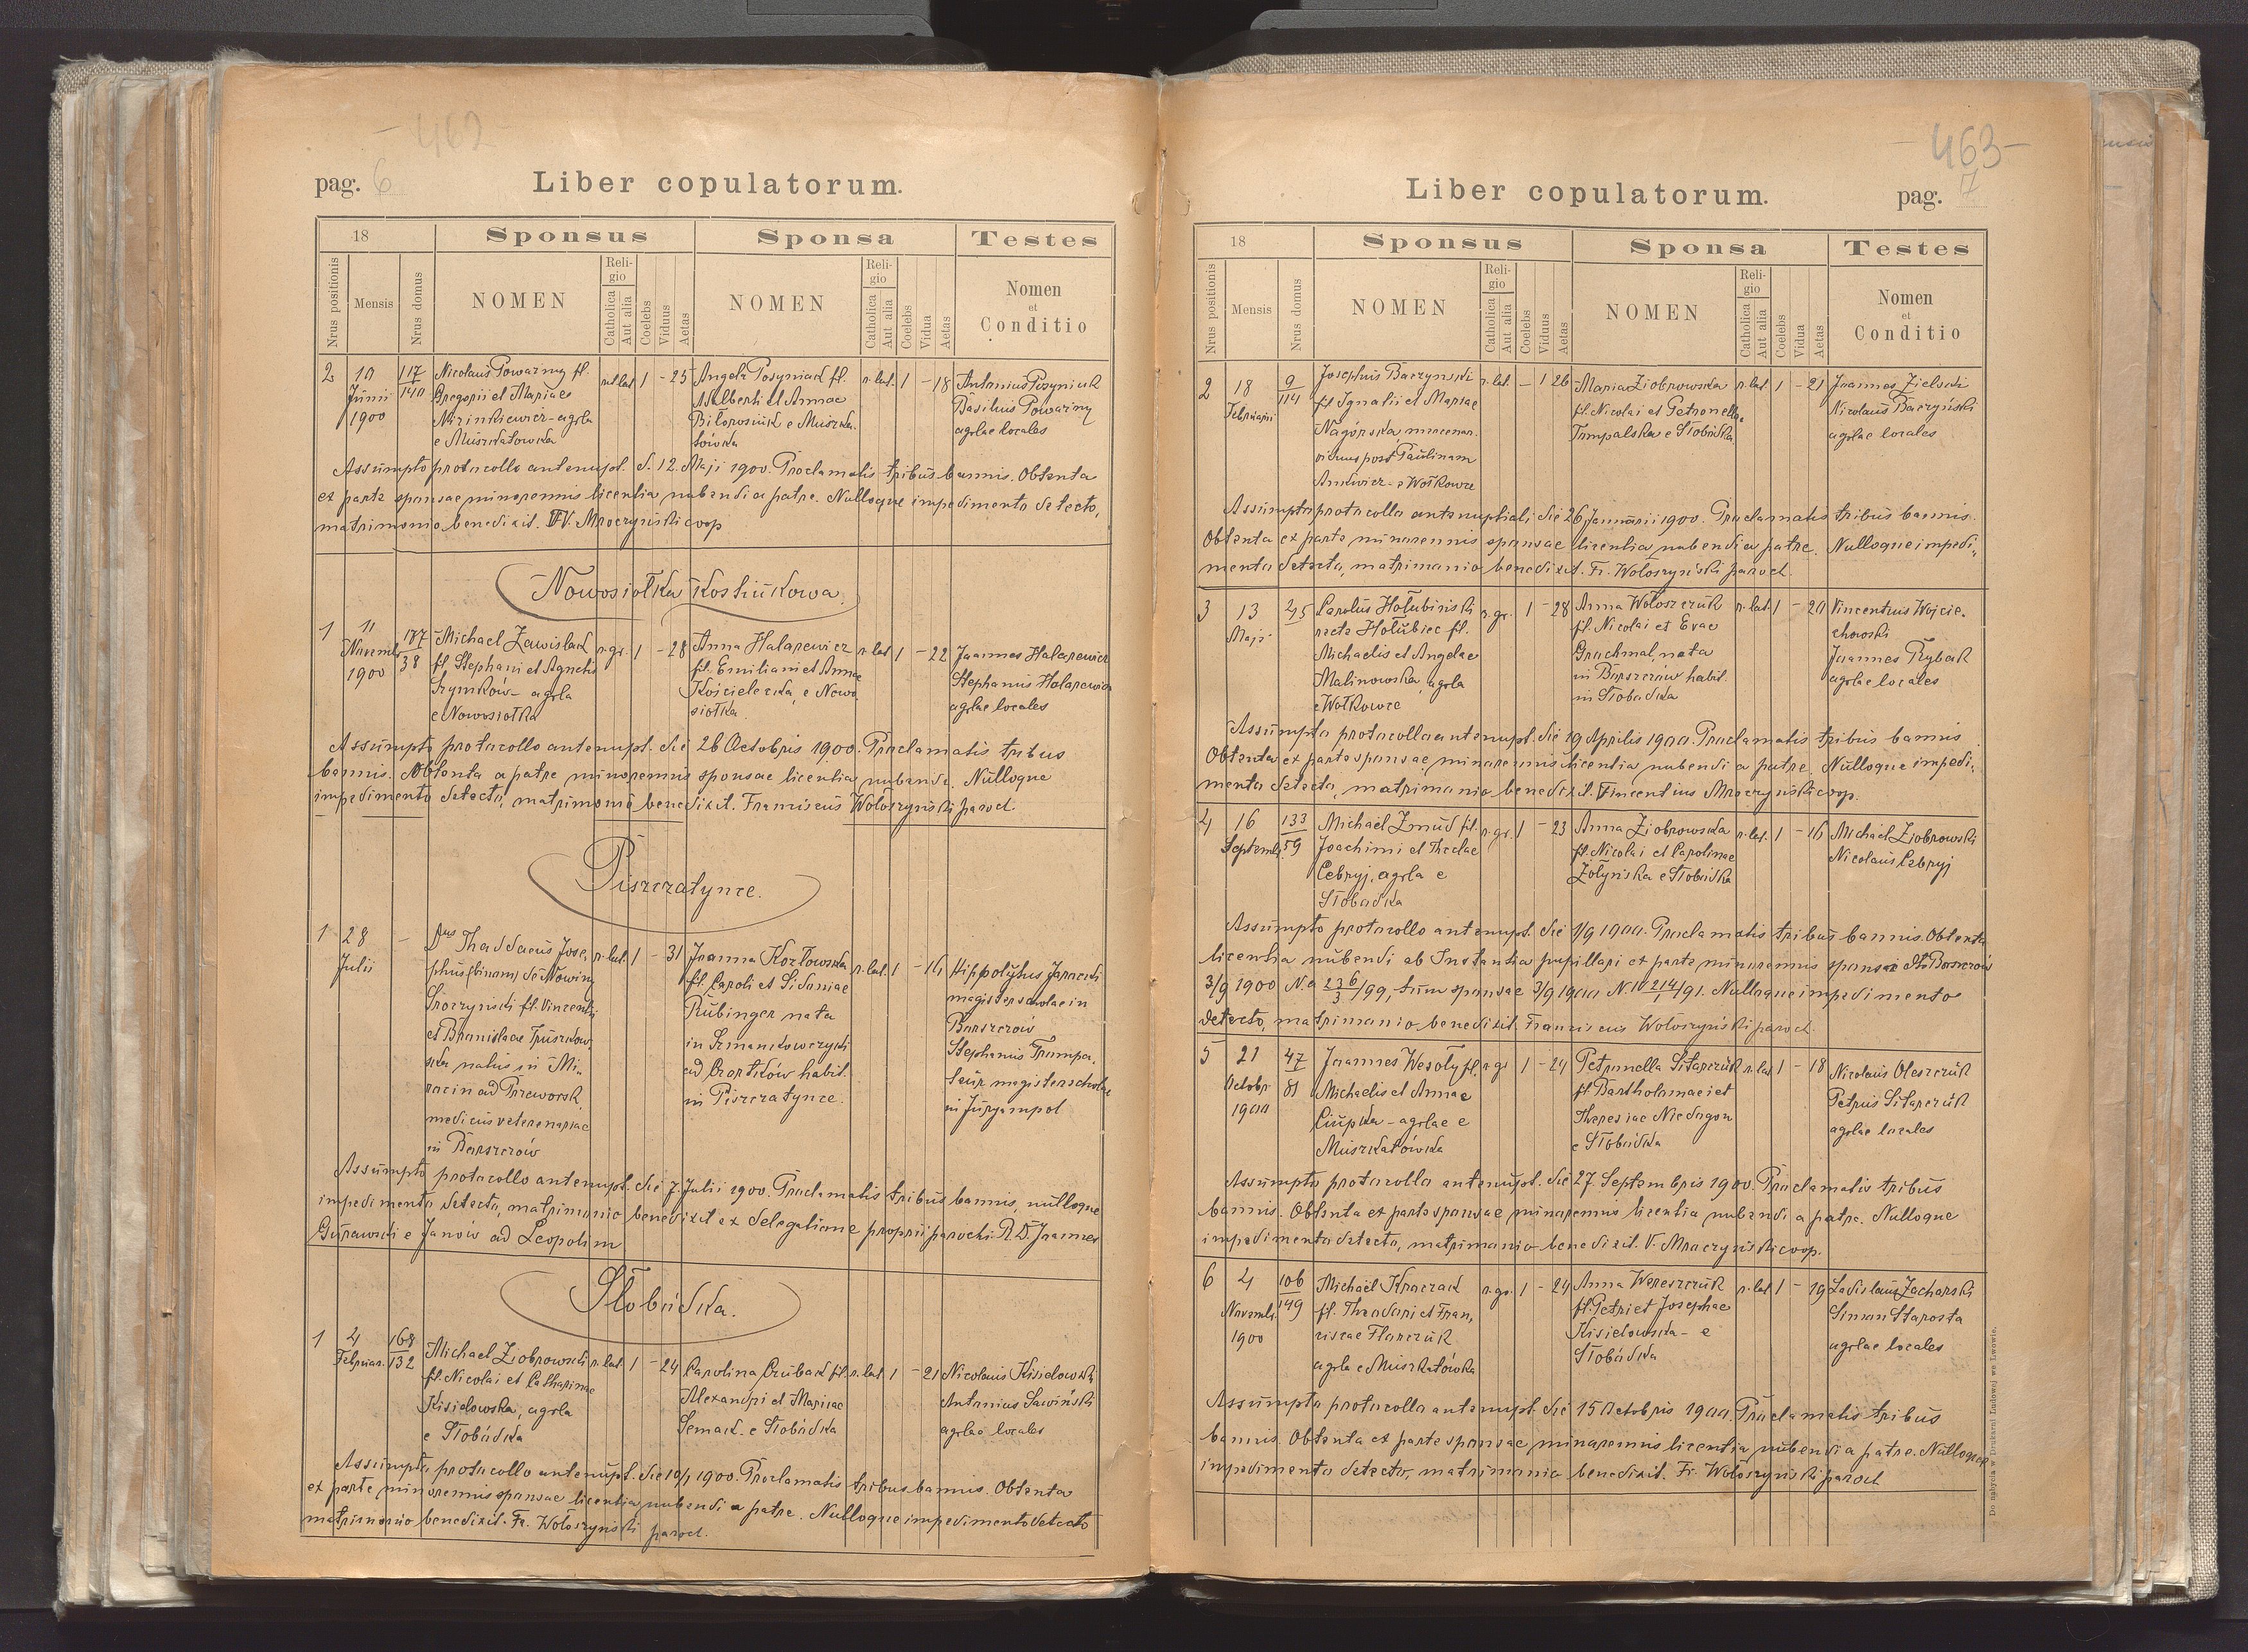 - 462
pag. 6
Liber copulatorum.
18
Sponsus
Sponsa
Testes
Nrus positionis
Mensis
Nrus domus
NOMEN
Religio
Catholica
Aut alia
Coelebs
Viduus
Aetas
NOMEN
Religio
Catholica
Aut alia
Coelebs
Vidua
Aetas
Nomen
et
Conditio
2
10
Junii
1900
117
140
Nicolaus Powarny fl.
Gregorii et Mariae
agrla
e Muszkatowka
rt lat
1
-
25
Angela Posyniak fl.
Adalberti et Annae
Biłoposiuk e Muszka-
tówka
r. lat.
1
-
18
Antonius Posyniuk
Basilius Powarny
agrlae locales
Assumpto protocollo antenupt. d. 12 Maji 1900. Proclamatis tribus bannis. Obtenta
ex parte sponsae minorennis licentia nubendi a patre. Nulloque impedimento detecto,
matrimonio benedixit. V. Mroczyński coop
Nowosiołka Kostiukowa.
1
11
Novemb
1900
177
38
Michael Zawislak
fl. Stephani et Agnetis
Szymków - agrla
e Nowosiołka
r. gr.
1
-
28
Anna Halarewicz
fl. Emiliani et Annae
Kościelecka, e Nowo-
siołka.
r. lat
1
-
22
Joannes Halarewicz
Stephanus Halarewicz
agrlae locales
Assumpto protocollo antenupt. die 26 Octobris 1900. Proclamatis tribus
bannis. Obtenta a patre minorennis sponsae licentia nubendi. Nulloque
impedimento detecto, matrimonio benedixit. Franciscus Wołoszyński paroch.
Piszczatynce.
1
28
Julii
-
Dnus Thaddaeus Jose-
phus (binom) de Słowiny
Sroczyński fl. Vincentii
et Bronislaae Truszkow-
ska natus in Mi-
rocin ad Przeworsk,
medicus veterenariae
in Borszczów
r. lat.
1
-
31
Joanna Kozłowska
fl. Caroli et Sidoniae
Rubinger nata
in Szmankowczyki
ad Czortków habit.
in Piszczatynce.
r. lat.
1
-
Hippolytus Jarocki
magister scholae in
Borszczów
Stephanus Trompe-
teur magister scholae
in Juryampol
Assumpto protocollo antenupt. die 7. Julii 1900. Proclamatis tribus bannis, nulloque
impedimento detecto, matrimonio benedixit ex delegatione proprii parochi R. D. Joannes
Gurawski e Janów ad Leopolim
Słobudka.
1
4
Februar.
168
132
Michael Ziobrowski
fl. Nicolai et Catharinae
Kisielowska, agrla
e Słobudka
r. lat.
1
-
24
Carolina Czubak fl.
Alexandri et Mariae
Semak. e Słobudka
r. lat
1
-
21
Nicolaus Kisielowski
Antonius Sawiński
agrlae locales
Assumpto protocollo antenupt. die 10/1 1900. Proclamatis tribus bannis. Obtenta
ex parte minorennis sponsae licentia nubendi a patre. Nulloque impedimento detecto
matrimonio benedixit. Fr. Wołoszyński paroch.
- 463 -
Liber copulatorum.
pag. 7
18
Sponsus
Sponsa
Testes
Nrus positionis
Mensis
Nrus domus
NOMEN
Religio
Catholica
Aut alia
Coelebs
Viduus
Aetas
NOMEN
Religio
Catholica
Aut alia
Coelebs
Vidua
Aetas
Nomen
et
Conditio
2
18
Februarii
9
114
Josephus Baczynski
fl. Ignatii et Mariae
Nagórska, mercenar.
viduus post Paulinam
e Wołkowce
r. lat.
-
1
26
Maria Ziobrowska
fl. Nicolai et Petronellae
Trmpalska e Słobudka
r. lat.
1
-
21
Joannes Zielski
Nicolaus Baczyński
agrlae locales
Assumpto protocollo antenuptiali die 26 Januarii 1900. Proclamatis tribus bannis.
Obtenta ex parte minorennis sponsae licentia nubendi a patre. Nulloque impedi-
mento detecto, matrimonio benedixit. Fr. Wołoszyński paroch.
3
13
Maji
45
Carolus Hołubiński
recte Hołubiec fl.
Michaelis et Angelae
Malinowska, agrla
e Wołkowce
r. gr.
1
-
28
Anna Wołoszczuk
fl. Nicolai et Evae
Grochmal, nata
in Borszczów habit.
in Słobudka
r. lat.
1
-
20
Vincentius Wojcie-
chowski
Joannes Rybak
agrlae locales
Assumpto protocollo antenupt. die 19 Aprilis 1900. Proclamatis tribus bannis
Obtenta ex parte sponsae, minorennis licentia nubendi a patre. Nulloque impedi-
mento detecto, matrimonio benedixit. Vincentius Mroczyński coop.
4
16
Septemb.
133
59
Michael Żmud fl.
Joachimi et Theclae
Cebryj, agrla e
Słobudka
r. gr.
1
-
23
Anna Ziobrowska
fl. Nicolai et Carolinae
Żołyńska e Słobudka
r. lat.
1
-
16
Michael Ziobrowski
Nicolaus Cebryj
Assumpto protocollo antenupt. die 1/9 1900. Proclamatis tribus bannis. Obtenta
licentia nubendi ab Instantia pupillari ex parte minorennis sponsi dto Borszczów
3/9 1900 N.o 236/3/99, tum sponsae 3/9 1900 N. 214/1/91. Nulloque impedimento
detecto, matrimonio benedixit. Franciscus Wołoszyński paroch.
5
21
Octobr
1900
47
81
Joannes Wesoły fl.
Michaelis et Annae
Ciupka - agrlae e
Muszkatówka
r. gr
1
-
24
Petronella Sitarczuk
fl. Bartholomaei et
Theresiae Niedogon
e Słobudka
r. lat
1
-
18
Nicolaus Oleszczuk
Petrus Sitarczuk
agrlae locales
Assumpto protocollo antenupt. die 27 Septembris 1900. Proclamatis tribus
bannis. Obtenta ex parte sponsae minorennis licentia nubendi a patre. Nulloque
impedimento detecto, matrimonio benedixit. V. Mroczyński coop.
6
4
Novemb.
1900
106
149
Michael Kraczak
fl. Theodori et Fran-
ciscae Harczuk
agrla e Muszkatówka
r. gr.
1
-
24
Anna Wereszczuk
fl. Petri et Josephae
Kisielowska - e
Słobudka
r. lat
1
-
19
Ladislaus Zacharski
Simon Starosta
agrlae locales
Assumpto protocollo antenupt. die 15 Octobris 1900. Proclamatis tribus
bannis. Obtenta ex parte sponsae, minorennis licentia nubendi a patre. Nulloque
impedimento detecto, matrimonio benedixit. Fr. Wołoszyński paroch
Do nabycia w Drukarni Ludowej we Lwowie.